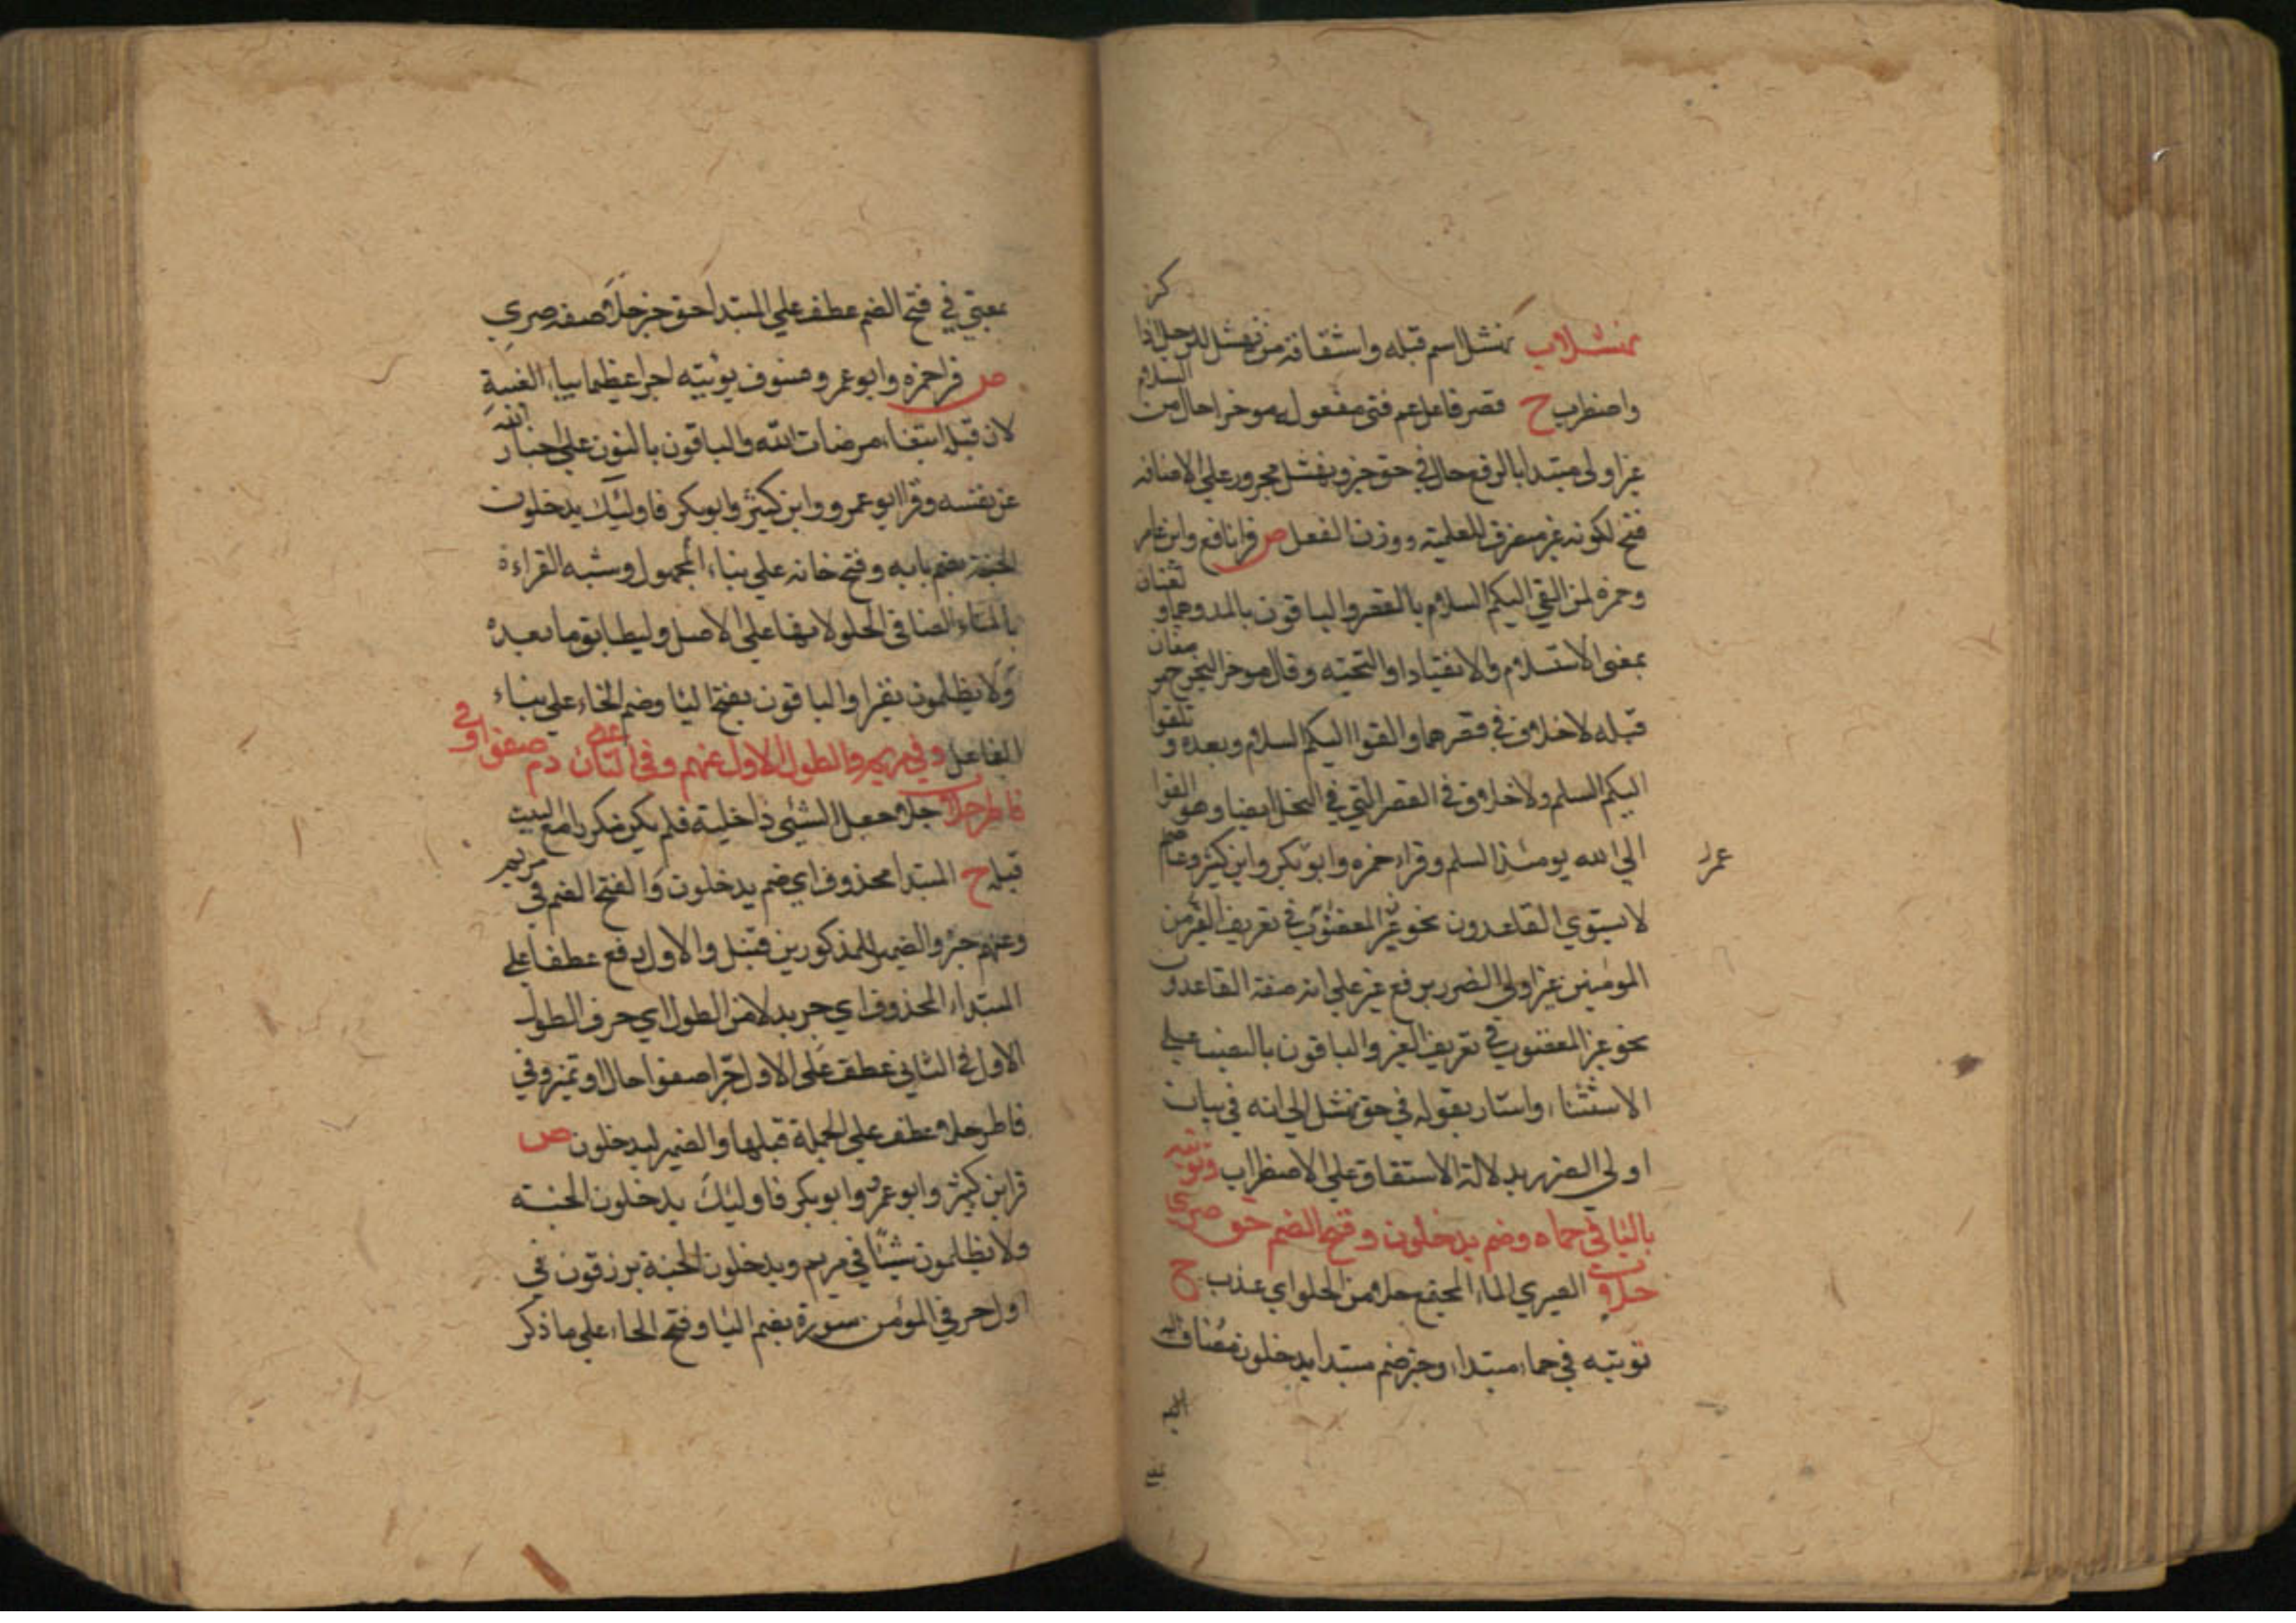 كز
نهشلا ب نهشل اسم قبله واشتقاقه من نهشل الرجل اذا
واضطرب ح قصر فاعل عم فتى مفعوله موخرا حال من السلام
غير اولى مبتدا بالرفع حال في حق خبر ونهشل مجرور على الاضافه
فتح لكونه غير منصرف للعلمية ووزن الفعل ص قرا نافع وابن عامر
وحمزه لمن القى اليكم السلام بالقصر والباقون بالمد وهما لغتان و
بمعنى الاستسلام والانقياد او التحيته وقال موخرا ليخرج حر
قبله لا خلاف في قصرهما والقوا اليكم السلام وبعده و تلقوا
اليكم السلم ولا خلاف في القصر التي في النحل ايضا وهو القوا
الى الله يومئذ السلم وقراء حمزه وابو بكر وابن كثير وعاصم
عمر
لا يستوي القاعدون نحو غير المغضوب في تعريف الغير من
المومنين غير اولى الضرر برفع غير على انه صفة القاعدون
نحو غير المغضوب في تعريف الغير والباقون بالنصب على
الاستثناء واشار بقوله في حق نهشل الى انه في بيان
اولى الضرر بدلالة الاشتقاق على الاضطراب ونوتيه
باليا في حماه وضم يدخلون وفتح الضم حق صرى
حلا ب الصرى الماء المجتمع حلا من الحلو اي عذب ح
نوتيه في حماه مبتداء وخبر ضم مبتدا يدخلون مضاف اليه
بمعنى في فتح الضم عطف على المبتدا حق خبر حلا صفة صرى
ص قرا حمزه وابو عمرو فسوف يوتيه اجرا عظيما بياء الغيبة
لان قبله ابتغاء مرضات الله والباقون بالنون على اخبار الله
عن نفسه وقرا ابو عمرو وابن كثير وابو بكر فاولئك يدخلون
الجنة بضم يايه وفتح خائه على بناء المجهول وشبه القراءة
بالماء الصافي الحلو لانها على الاصل وليطابق ما بعده
ولا يظلمون نقيرا والباقون بفتح اليا وضم الخاء على بناء
الفاعل وفي مريم والطول الاول عنهم وفي الثان دم صفوا وفي
فاطر حلا ب حلا جعل الشئ ذا حلية فلم يكن مكررا مع البيت
قبله ح المبتدا محذوف اي ضم يدخلون والفتح الضم في مريم
وعنهم خبر والضمير للمذكورين قبل والاول رفع عطفا على
المبتداء المحذوف اي جر بدلا من الطول اي حرف الطول
الاول في الثاني عطف على الاول خبرا صفوا حال او تميز وفي
فاطر حلا عطف على الجملة قبلها والضمير ليدخلون ص
قرا ابن كثير وابو عمرو وابو بكر فاولئك يدخلون الجنة
ولا يظلمون شيئا في مريم ويدخلون الجنة يرزقون في
اول حرفي المؤمن سورة بضم اليا وفتح الخاء على ما ذكر